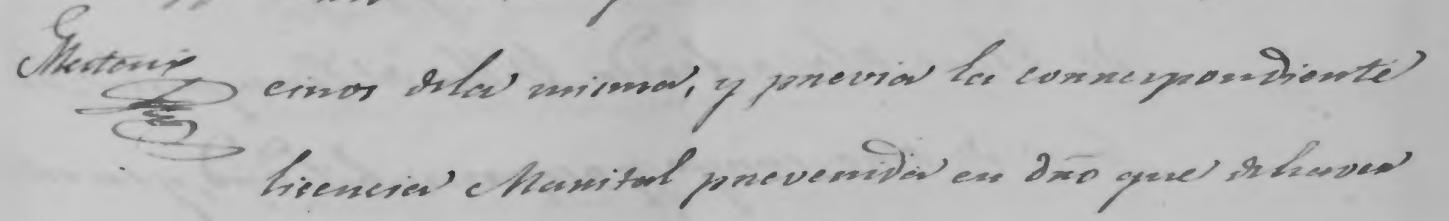 cinos dela misma, y previa la correspondiente
licencia Marital prevenida en dro que dehaver